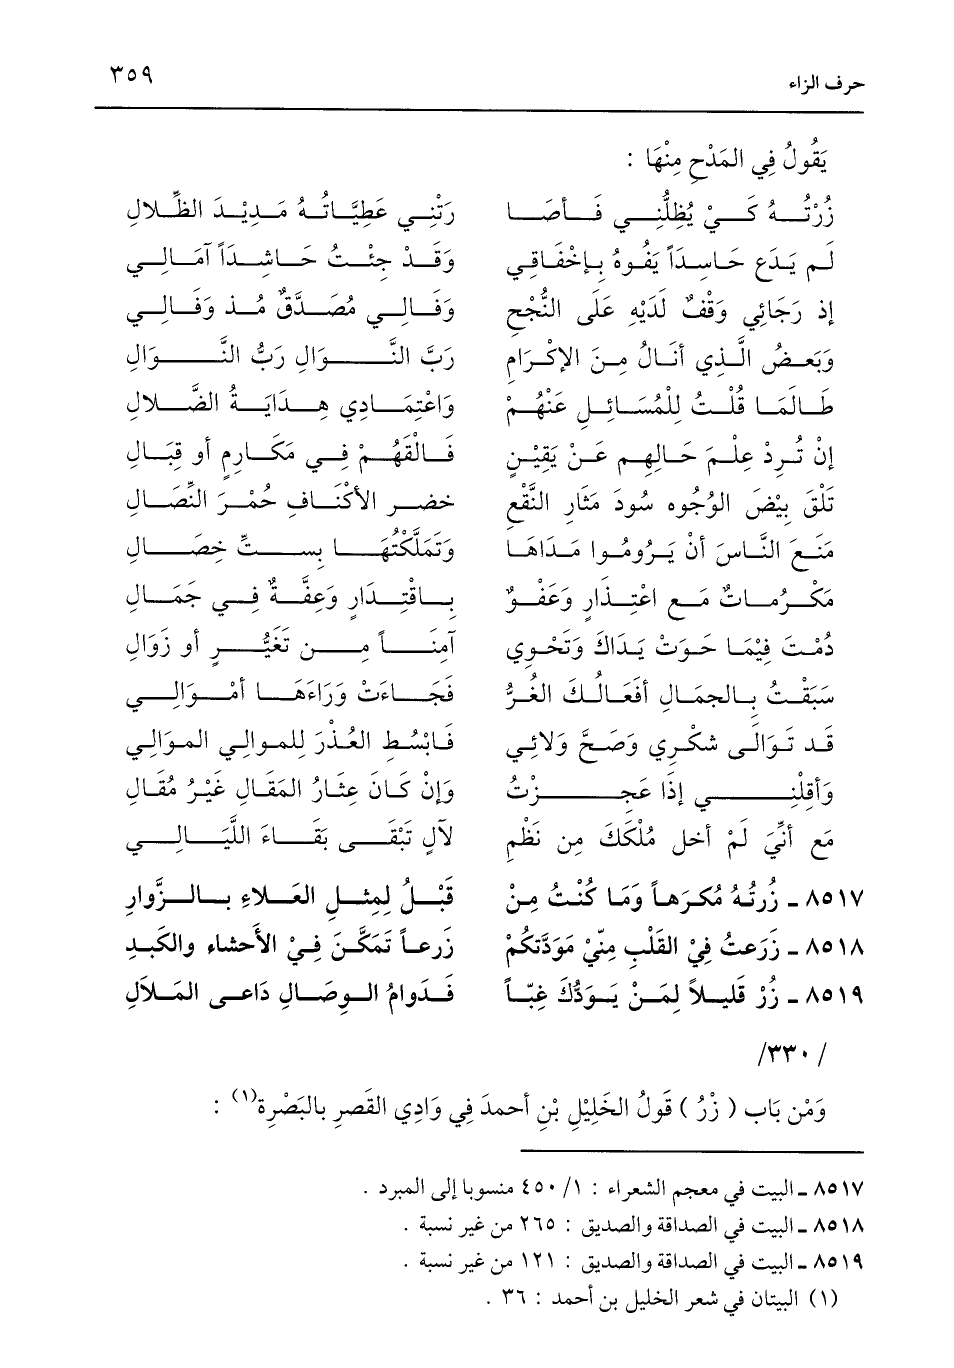 حرف الزاء ٣٥٩
يَقُولُ فِي المَدْحِ مِنْهَا :
زُرْتُهُ كَيْ يُظِلُّنِي فَأَصَا رَتْنِي عَطِيَّاتُهُ مَدِيْدَ الظِّلالِ
لَم يَدَع حَاسِدَاً يَفُوهُ بِإخْفَاقِي وَقَدْ جِئْتُ حَاشِدَاً آمَالِي
إذ رَجَائِي وَقْفٌ لَدَيْهِ عَلَى النُّجْحِ وَفَالِي مُصَدَّقٌ مُذ وَفَالِي
وَبَعضُ الَّذِي أنَالُ مِنَ الإكْرَامِ رَبَّ النَّوَالِ رَبُّ النَّوَالِ
طَالَمَا قُلْتُ لِلْمُسَائِلِ عَنْهُمْ وَاعْتِمَادِي هِدَايَةُ الضَّلالِ
إنْ تُرِدْ عِلْمَ حَالِهِم عَنْ يَقِيْنٍ فَالْقَهُمْ فِي مَكَارِمٍ أو قِتَالِ
تَلْقَ بِيْضَ الوُجُوه سُودَ مَثَارِ النَّقْعِ خضر الأكْنَافِ حُمْرَ النِّصَالِ
مَنَعَ النَّاسَ أنْ يَرُومُوا مَدَاهَا وَتَمَلَّكْتُهَا بِسِتِّ خِصَالِ
مَكْرُمَاتٌ مَع اعْتِذَارٍ وَعَفْوٌ بِاقْتِدَارٍ وَعِفَّةٌ فِي جَمَالِ
دُمْتَ فِيْمَا حَوَتْ يَدَاكَ وَتَحْوِي آمِنَاً مِن تَغَيُّرٍ أو زَوَالِ
سَبَقْتُ بِالجمَالِ أفْعَالُكَ الغُرُّ فَجَاءَتْ وَرَاءَهَا أمْوَالِي
قَد تَوَالَى شكْرِي وَصَحَّ وَلائِي فَابْسُط العُذْرَ لِلموالِي الموَالِي
وَأقِلْنِي إذَا عَجِزْتُ وَإنْ كَانَ عِثَارُ المَقَالِ غَيْرُ مُقَالِ
مَع أنِّيَ لَمْ أخل مُلْكَكَ مِن نَظْمِ لآلٍ تَبْقَى بَقَاءَ اللَّيَالِي
٨٥١٧ ـ زُرتُهُ مُكرَهاً وَمَا كُنْتُ مِنْ قَبْلُ لِمِثلِ العَلاءِ بِالزَّوارِ
٨٥١٨ ـ زَرَعتُ فِيْ القَلْبِ مِنّيْ مَوَدَّتكُمْ زَرعاً تَمَكَّنَ فِيْ الأَحشاء والكَبدِ
٨٥١٩ ـ زُرْ قَليلاً لِمَنْ يَوَدُّكَ غِبّاً فَدَوامُ الوِصَالِ دَاعى المَلَالِ
/ ٣٣٠/
وَمْن بَاب ( زْرُ ) قَولُ الخَلِيْلِ بْنِ أحمدَ فِي وَادِي القَصرِ بالبَصْرِة(١) :
٨٥١٧ ـ البيت في معجم الشعراء : ١/ ٤٥٠ منسوبا إلى المبرد .
٨٥١٨ ـ البيت في الصداقة والصديق : ٢٦٥ من غير نسبة .
٨٥١٩ ـ البيت في الصداقة والصديق : ١٢١ من غير نسبة .
(١) البيتان في شعر الخليل بن أحمد : ٣٦ .